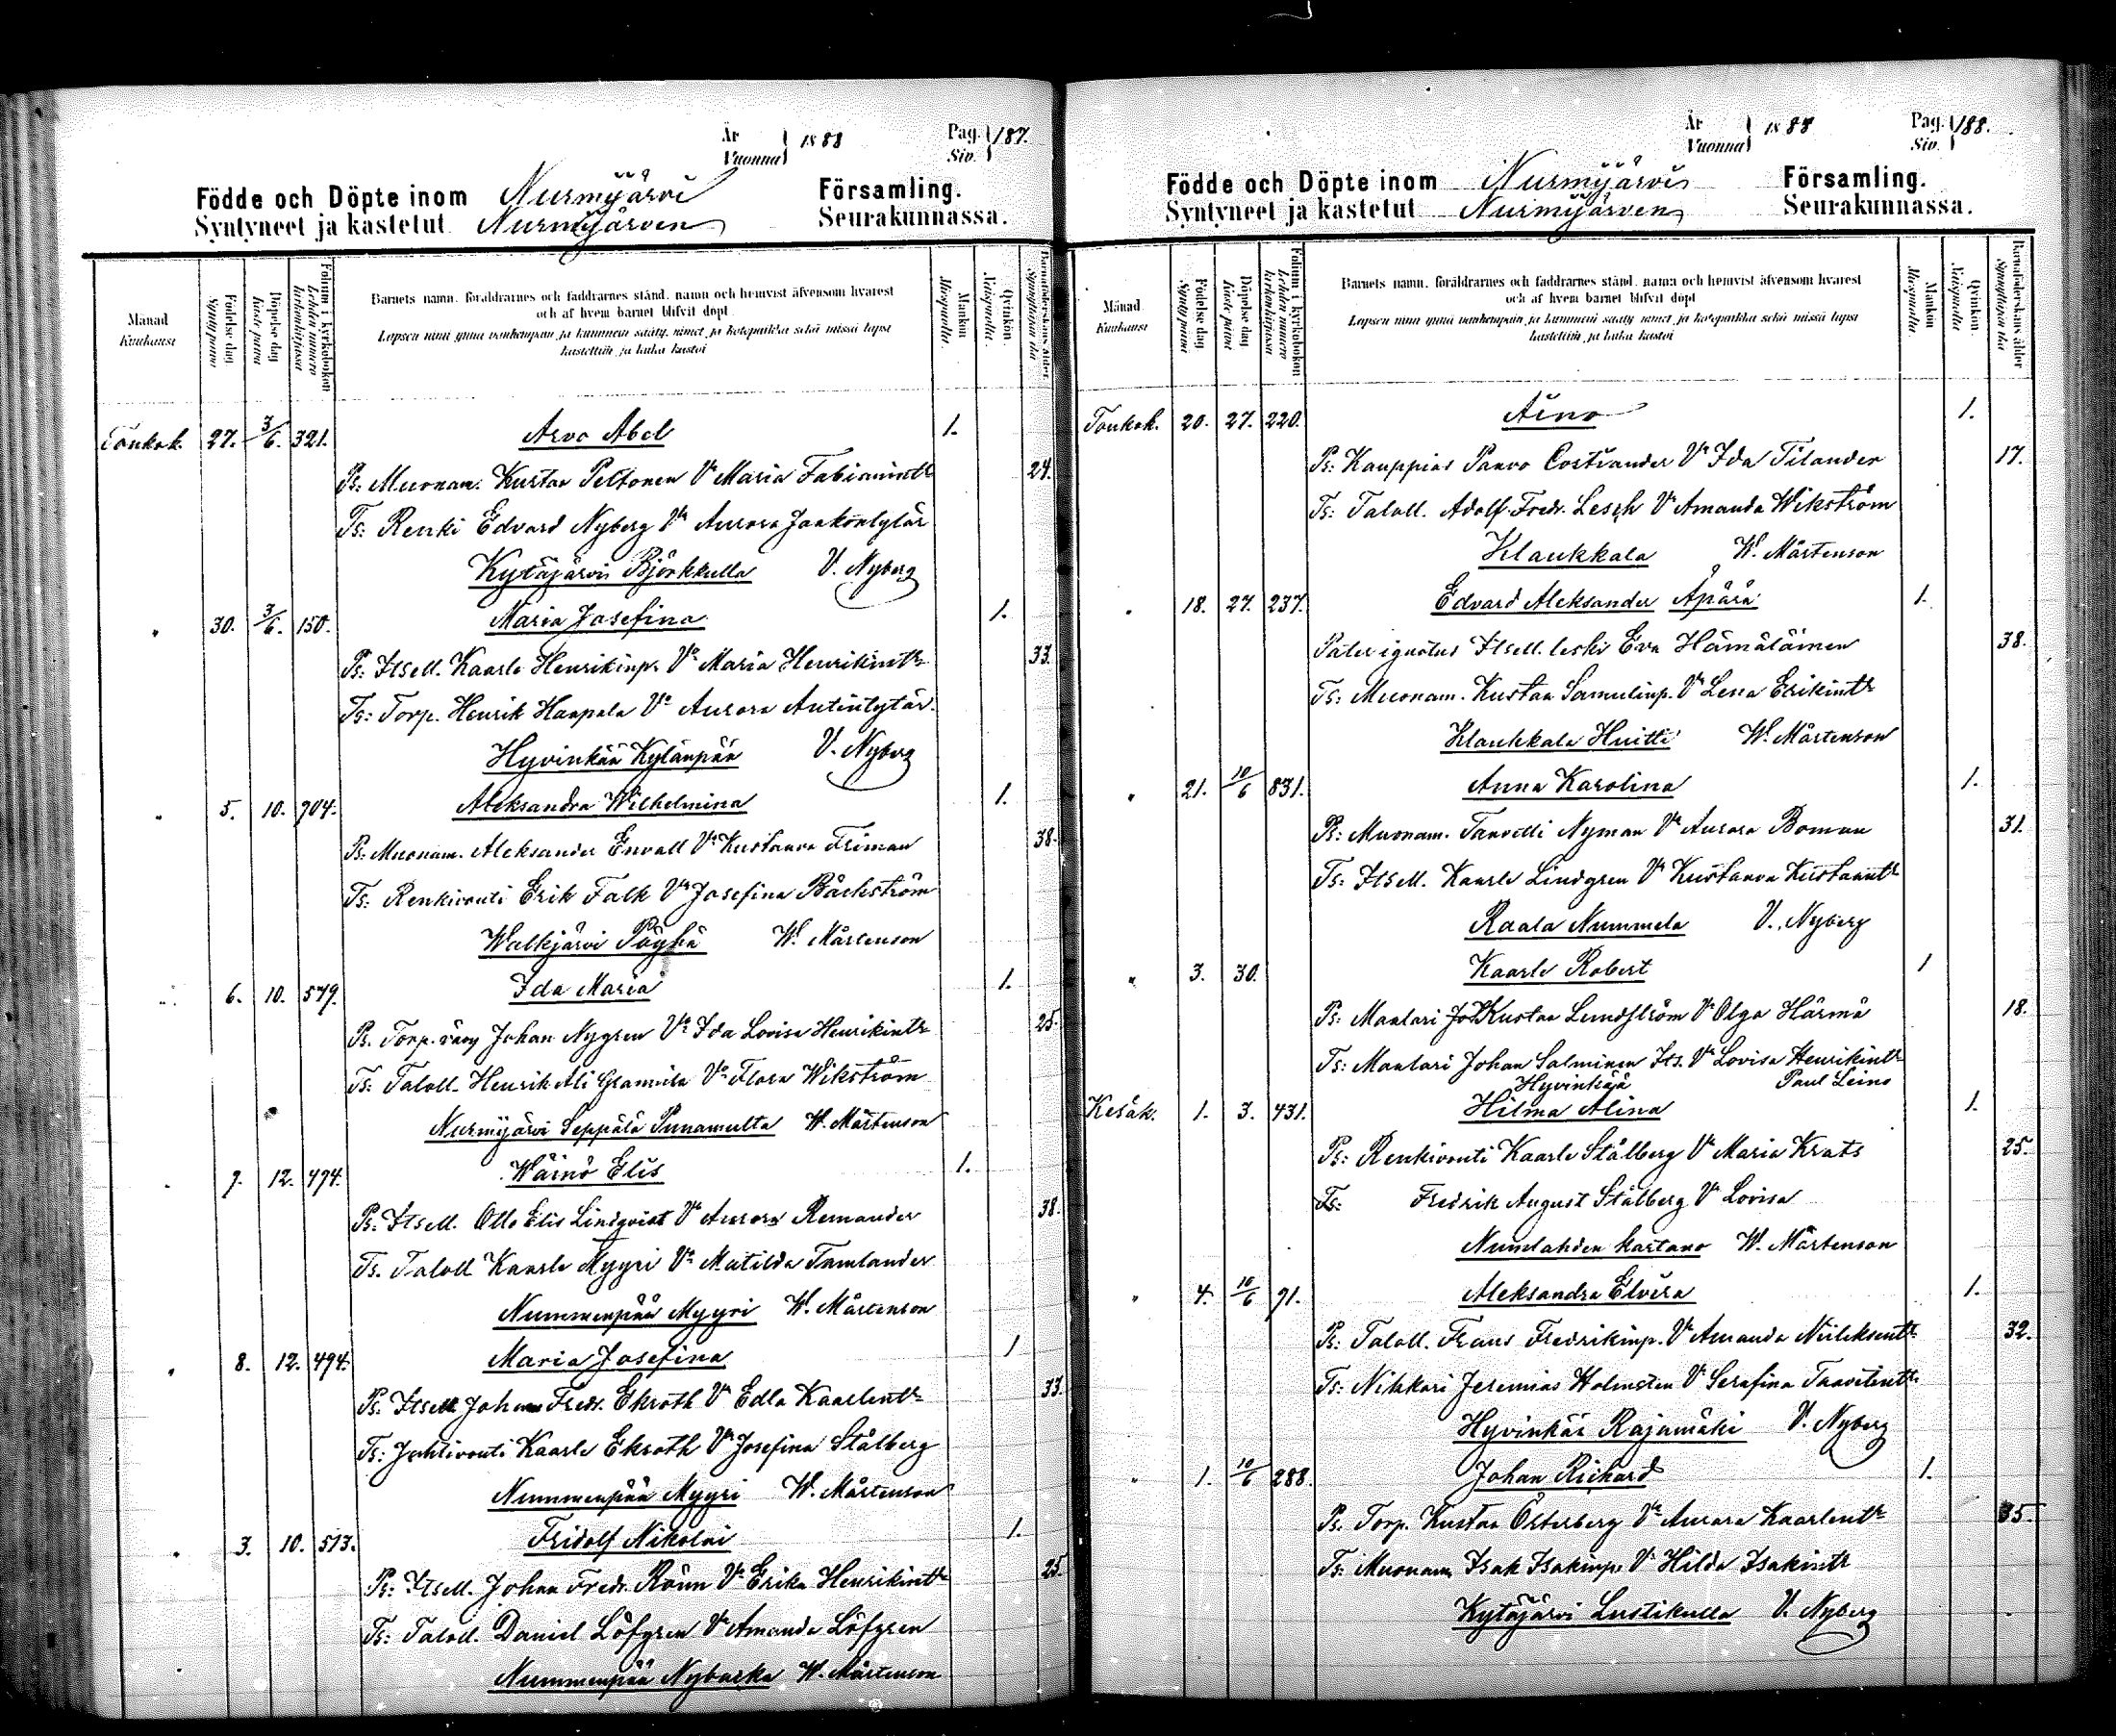 År Vuonna 1888 Pag. Siv. 187.
Födde och Döpte inom Nurmijärvi Församling.
Syntyneet ja kastetut Nurmijärven Seurakunnassa.
Månad Kuukausi
Födelse dag Syntypäivä
Döpelse dag Kaste päivä
Folium i kyrkoboken Lehden numero kirkonkirjassa
Barnets namn, föräldrarnes och faddrarnes stånd, namn och hemvist äfvensom hvarest
och af hvem barnet blifvit döpt
Lapsen nimi ynnä vanhempain ja kummein sääty, nimet ja kotopaikka sekä missä lapsi
kastettiin ja kuka kastoi
Mankön. Miespuolta.
Qvinkön. Naispuolta.
Barnaföderskans ålder Synnyttäjän ikä
Toukok. 27. 3/6. 321. Arvo Abel 1.
Ps: Muonam. Kustaa Peltonen Vo Maria Fabianintr 24.
Ts: Renki Edvard Nyberg Vo Aurora Jaakontytär
Kytäjärvi Björkkulla V. Nyberg
" 30. 3/6. 150. Maria Josefina 1.
Ps: Itsell. Kaarle Henrikinp. Vo Maria Henrikintr 33.
Ts: Torp. Henrik Haapala Vo Aurora Antintytär.
Hyvinkää Kylänpää V. Nyberg
" 5. 10. 704. Aleksandra Wilhelmina 1.
Ps: Muonam. Aleksander Envall Vo Kustaava Friman 38.
Ts: Renkivouti Erik Falk Vo Josefina Bäckström
Walkjärvi Pöyhä W. Mårtenson
" 6. 10. 579. Ida Maria 1.
Ps. Torp. Johan Nygren Vo Ida Lovisa Henrikintr 25.
Ts: Taloll. Henrik Ali Vo Flora Wikström
Nurmijärvi Seppälä Punamulta W. Mårtenson
" 7. 12. 474. Wäinö Elis 1.
Ps. Itsell. Otto Elis Lindqvist Vo Aurora Remander 38.
Ts. Taloll. Kaarle Myyri Vo Matilda Tamlander
Nummenpää Myyri W. Mårtenson
" 8. 12. 494. Maria Josefina 1
Ps: Itsell Johan Fredr. Ekroth Vo Edla Kaarlentr 33
Ts: Jahtivouti Kaarle Ekroth Vo Josefina Stålberg
Nummenpää Myyri W. Mårtenson
" 3. 10. 513. Fridolf Nikolai 1.
Ps: Itsell. Johan Fredr. Rönn Vo Erika Henrikintr 25
Ts: Taloll. Daniel Löfgren Vo Amanda Löfgren
Nummenpää Nybacka W. Mårtenson
År Vuonna 1888 Pag. Siv. 188.
Födde och Döpte inom Nurmijärvi Församling.
Syntyneet ja kastetut Nurmijärven Seurakunnassa.
Månad Kuukausi
Födelse dag Syntypäivä
Döpelse dag Kaste päivä
Folium i kyrkoboken Lehden numero kirkonkirjassa
Barnets namn, föräldrarnes och faddrarnes stånd, namn och hemvist äfvensom hvarest
och af hvem barnet blifvit döpt
Lapsen nimi ynnä vanhempain ja kummein sääty, nimet ja kotopaikka sekä missä lapsi
kastettiin ja kuka kastoi
Mankön. Miespuolta.
Qvinkön. Naispuolta.
Barnaföderskans ålder Synnyttäjän ikä
Toukok. 20. 27. 220. Aino 1.
Ps: Kauppias Paavo Costiander Vo Ida Tilander 17.
Ts: Taloll. Adolf Fredr. Lesch Vo Amanda Wikström
Klaukkala W. Mårtenson
" 18. 27. 237. Edvard Aleksander Äpärä 1.
Pater ignotus Itsell. leski Eva Hämäläinen 38.
Ts: Muonam. Kustaa Samulinp. Vo Lena Erikintr
Klaukkala Huitti W. Mårtenson
" 21. 10/6 831. Anna Karolina 1.
Ps: Muonam. Taavetti Nyman Vo Aurora Boman 31.
Ts: Itsell. Kaarle Lindgren Vo Kustaava Kustaantr
Raala Nummela V. Nyberg
" 3. 30. Kaarle Robert 1
Ps: Maalari Kustaa Lundström Vo Olga Härmä 18.
Ts: Maalari Johan Salminen Its. Vo Lovisa Henrikintr
Hyvinkää Paul Leino
Kesäk. 1. 3. 431. Hilma Alina 1.
Ps: Renkivouti Kaarle Stålberg Vo Maria Krats 25.
Ts: Fredrik August Stålberg Vo Lovisa
Numlahden kartano W. Mårtenson
" 4. 10/6 91. Aleksandra Elvira 1.
Ps: Taloll. Frans Fredrikinp. Vo Amanda Niileksentr 32.
Ts: Nikkari Jeremias Holmsten Vo Serafina Taavetintr
Hyvinkää Rajamäki V. Nyberg
" 1. 10/6 288. Johan Richard 1.
Ps. Torp. Kustaa Österberg Vo Aurora Kaarlentr 35.
Ts: Muonam. Isak Isakinp. Vo Hilda Isakintr
Kytäjärvi Lustikulla V. Nyberg